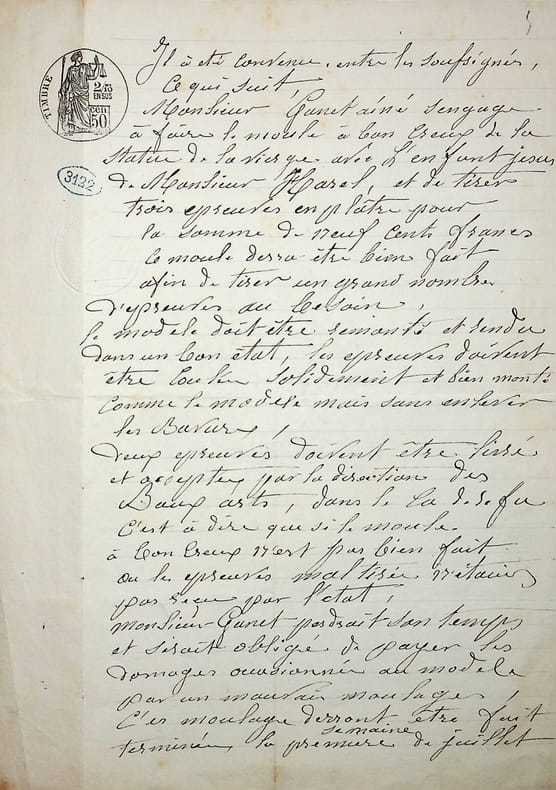 TIMBRE
2/10
EN SUS
50
3122
Il a été convenu entre les soussignés,
Ce qui suit
Monsieur Ganet ainé s'engage
à faire le moule à bon Creux de la
statue de la vierge avec L'enfant jesus
de Monsieur Harel, et de tirer
trois epreuves en plâtre pour
la somme de neuf Cents francs
le moule devra être bien fait
afin de tirer un grand nombre
d'epreuves au besoin,
le modele doit être remonté et rendu
dans un bon état, les epreuves doivent
être solidement et bien monté
comme le modèle mais sans enlever
les
Deux epreuves doivent être livré
et acceptée par la direction des
Beaux arts, dans le
C'est à dire que si le moule
à bon Creux n'est pas bien fait
ou les epreuves mal tirée n'étaient
pas reçu par l'état
monsieur Ganet perdrait son temps
et serait obligé de payer les
domages ocasionnée au modele
par un mauvais moulage,
C'es moulage devront être fait
semaine
terminée la premiere de juillet